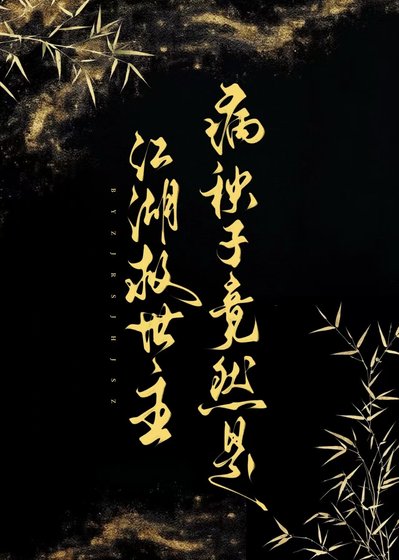 病秧子竟然是
江湖救世主
BYZJRSJHJSZ